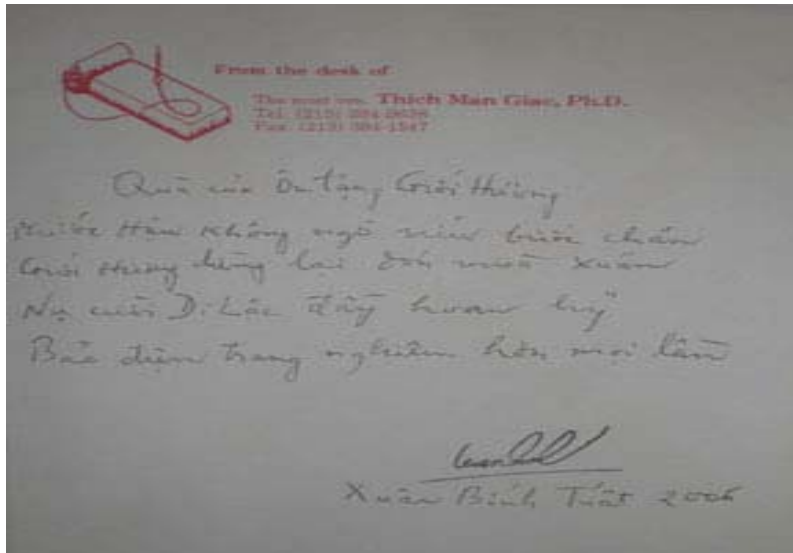 From the desk of
The most ven. Thich Man Giac, Ph.D.
Tel. (213)
Fax. (213) 384-1547
Quà của Ôn tặng Giới Hương
Nước Hán không ngờ níu bước chân
Giới Hương dừng lại đón mùa Xuân
Nụ cười Di Lặc đầy hoan hỷ
Bảo điện trang nghiêm hơn mọi lần
Xuân Bính Tuất 2006